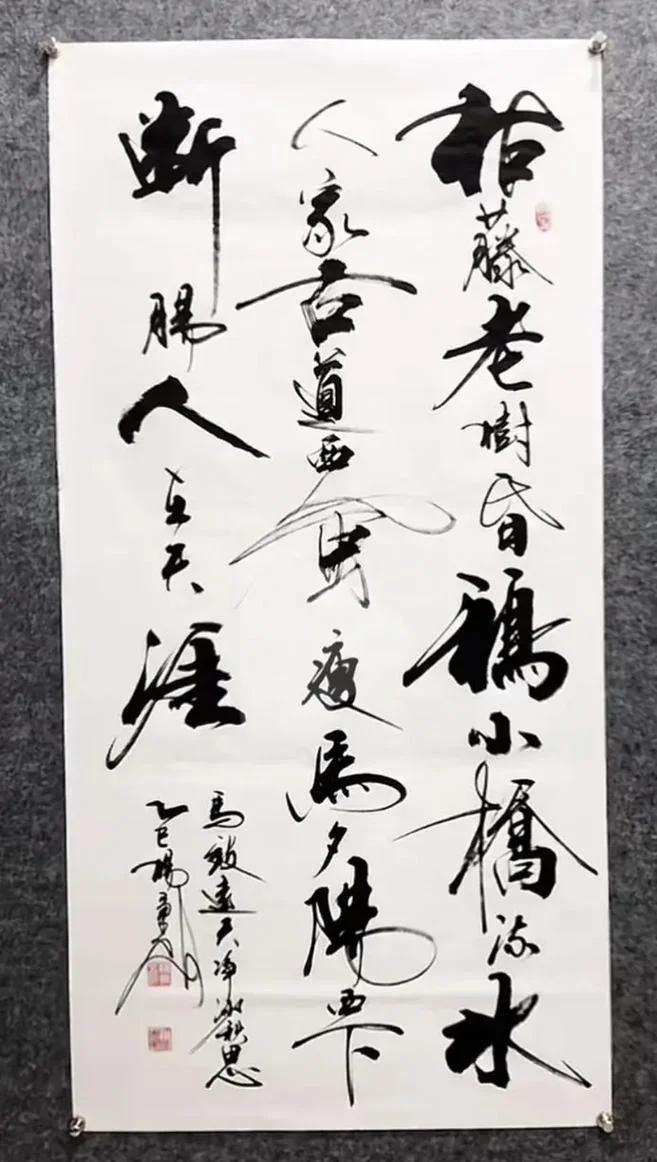 枯藤老樹昏鴉小橋流水
人家古道西風瘦馬夕陽西下
斷腸人在天涯
馬致遠天淨沙秋思
乙巳楊